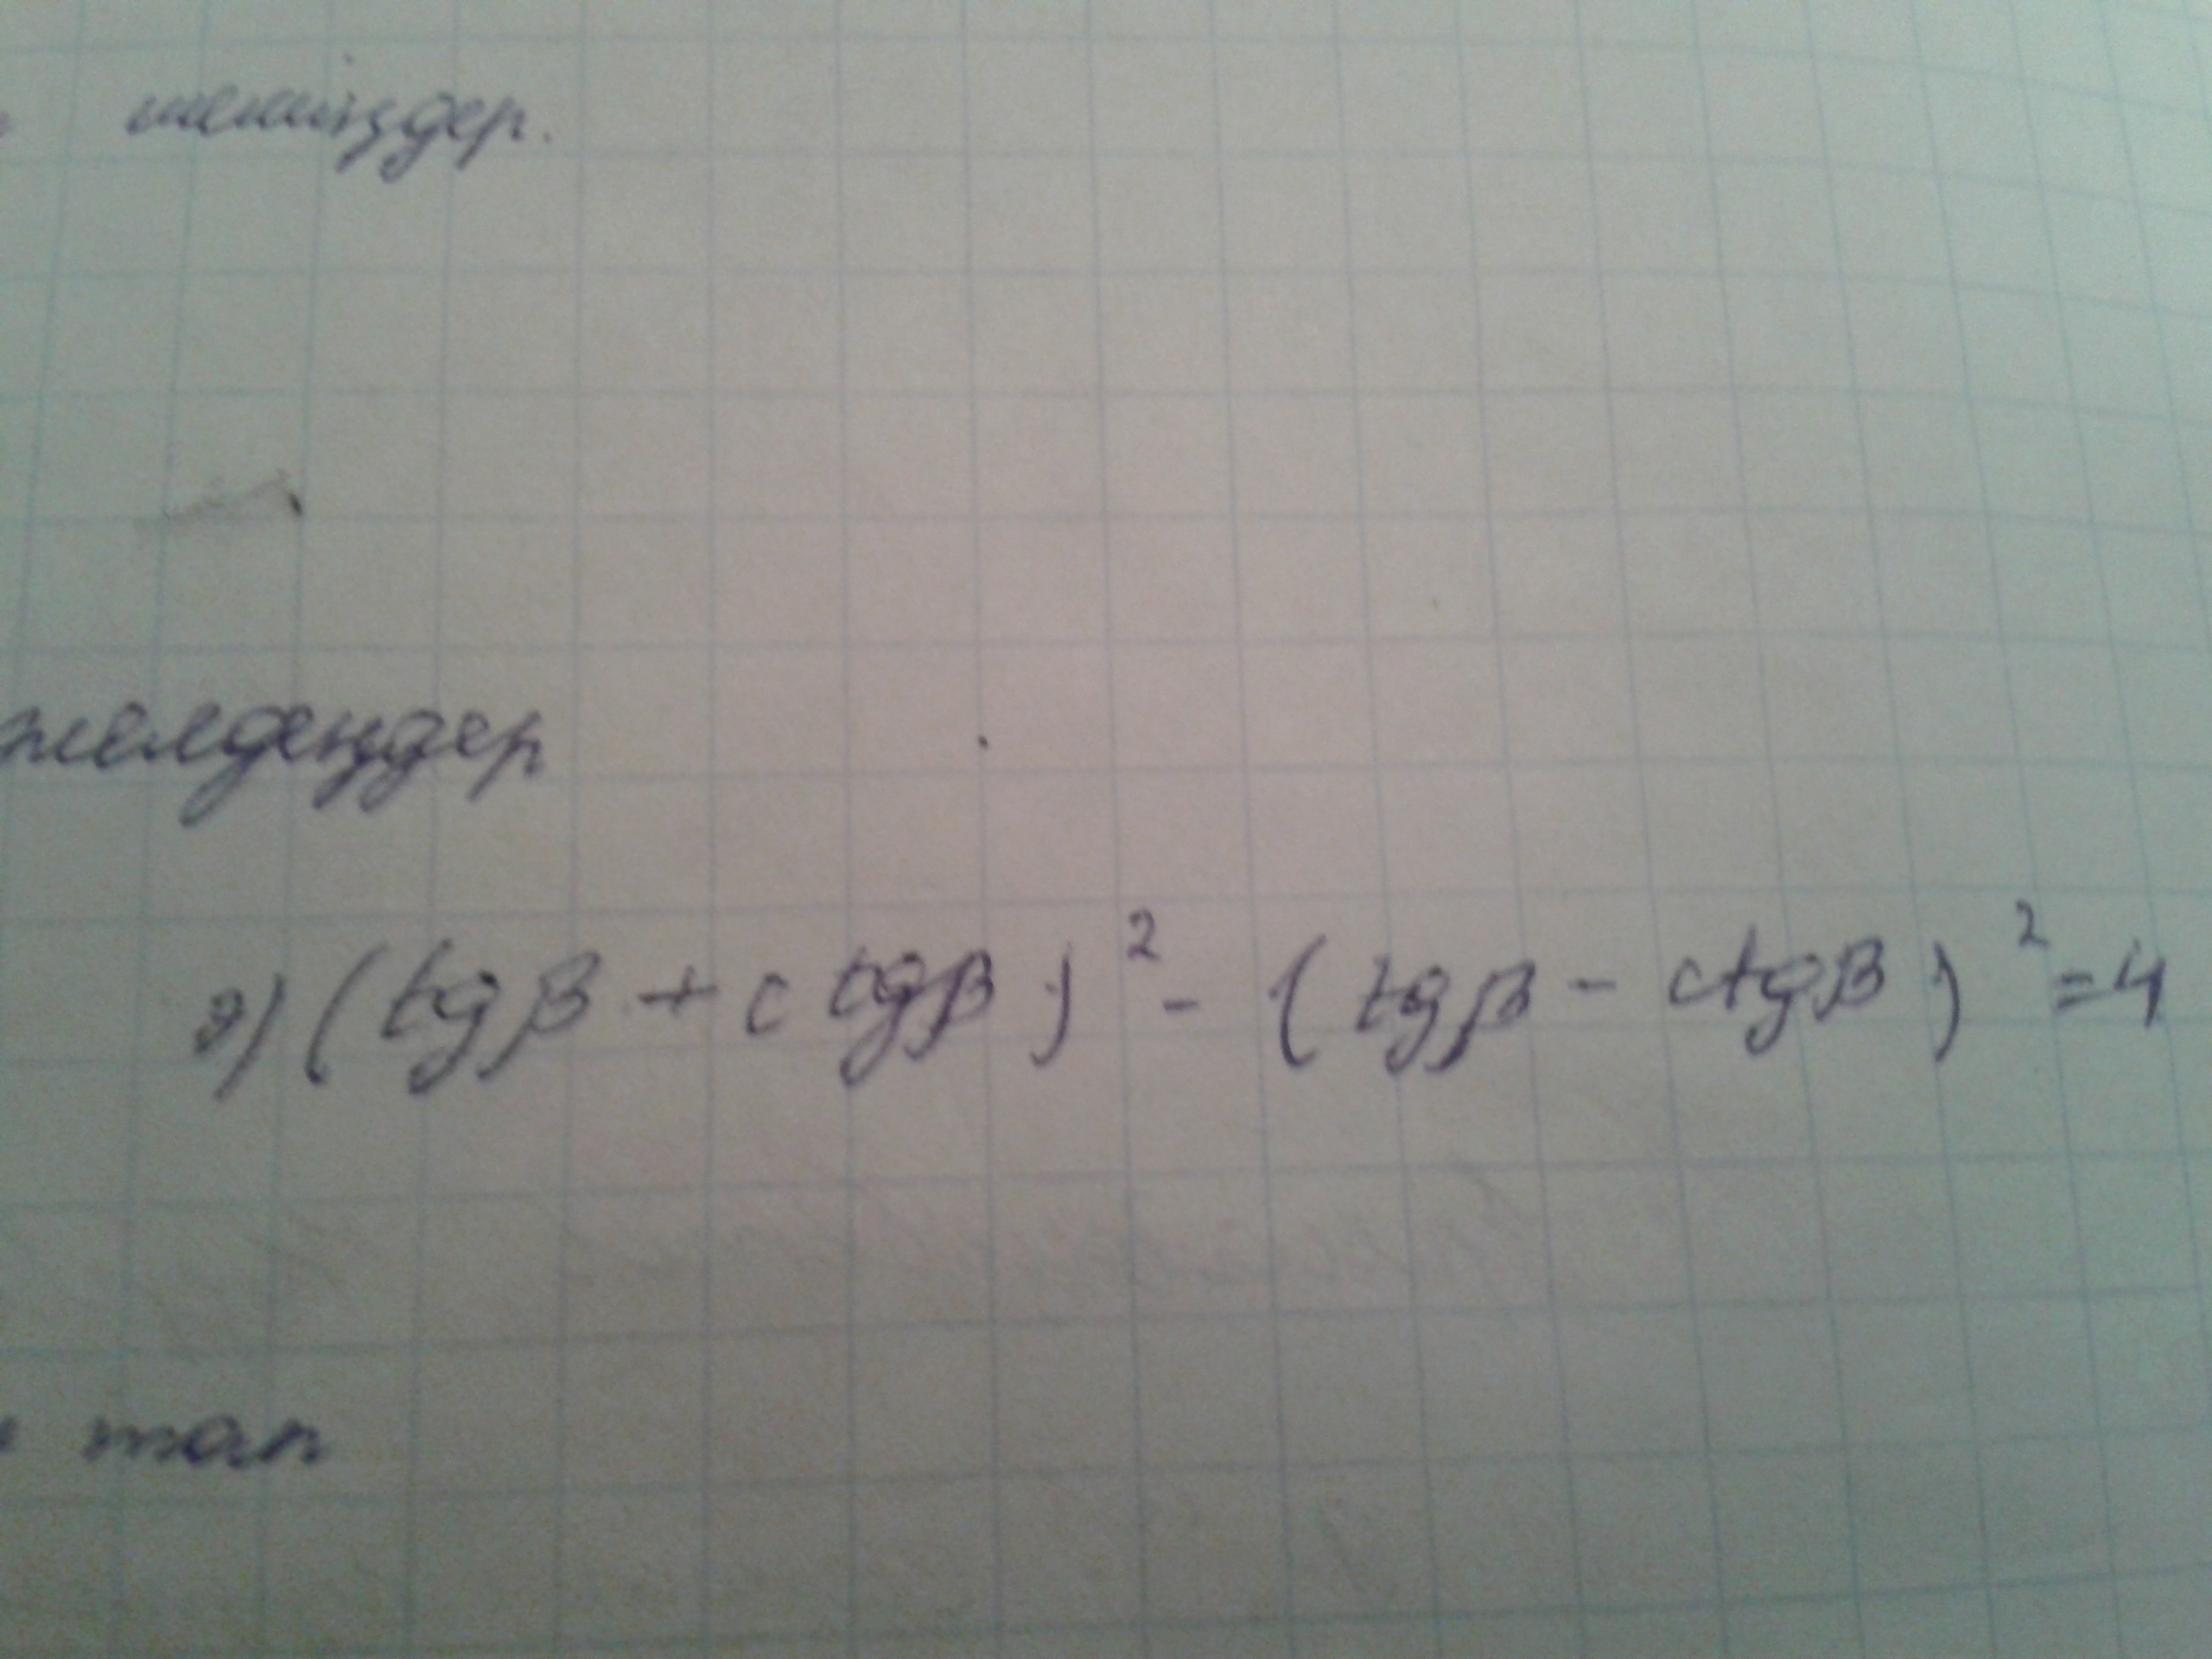 шешіңдер.
желдеңдер
ә) (tgβ + ctgβ)² - (tgβ - ctgβ)² = 4
тап